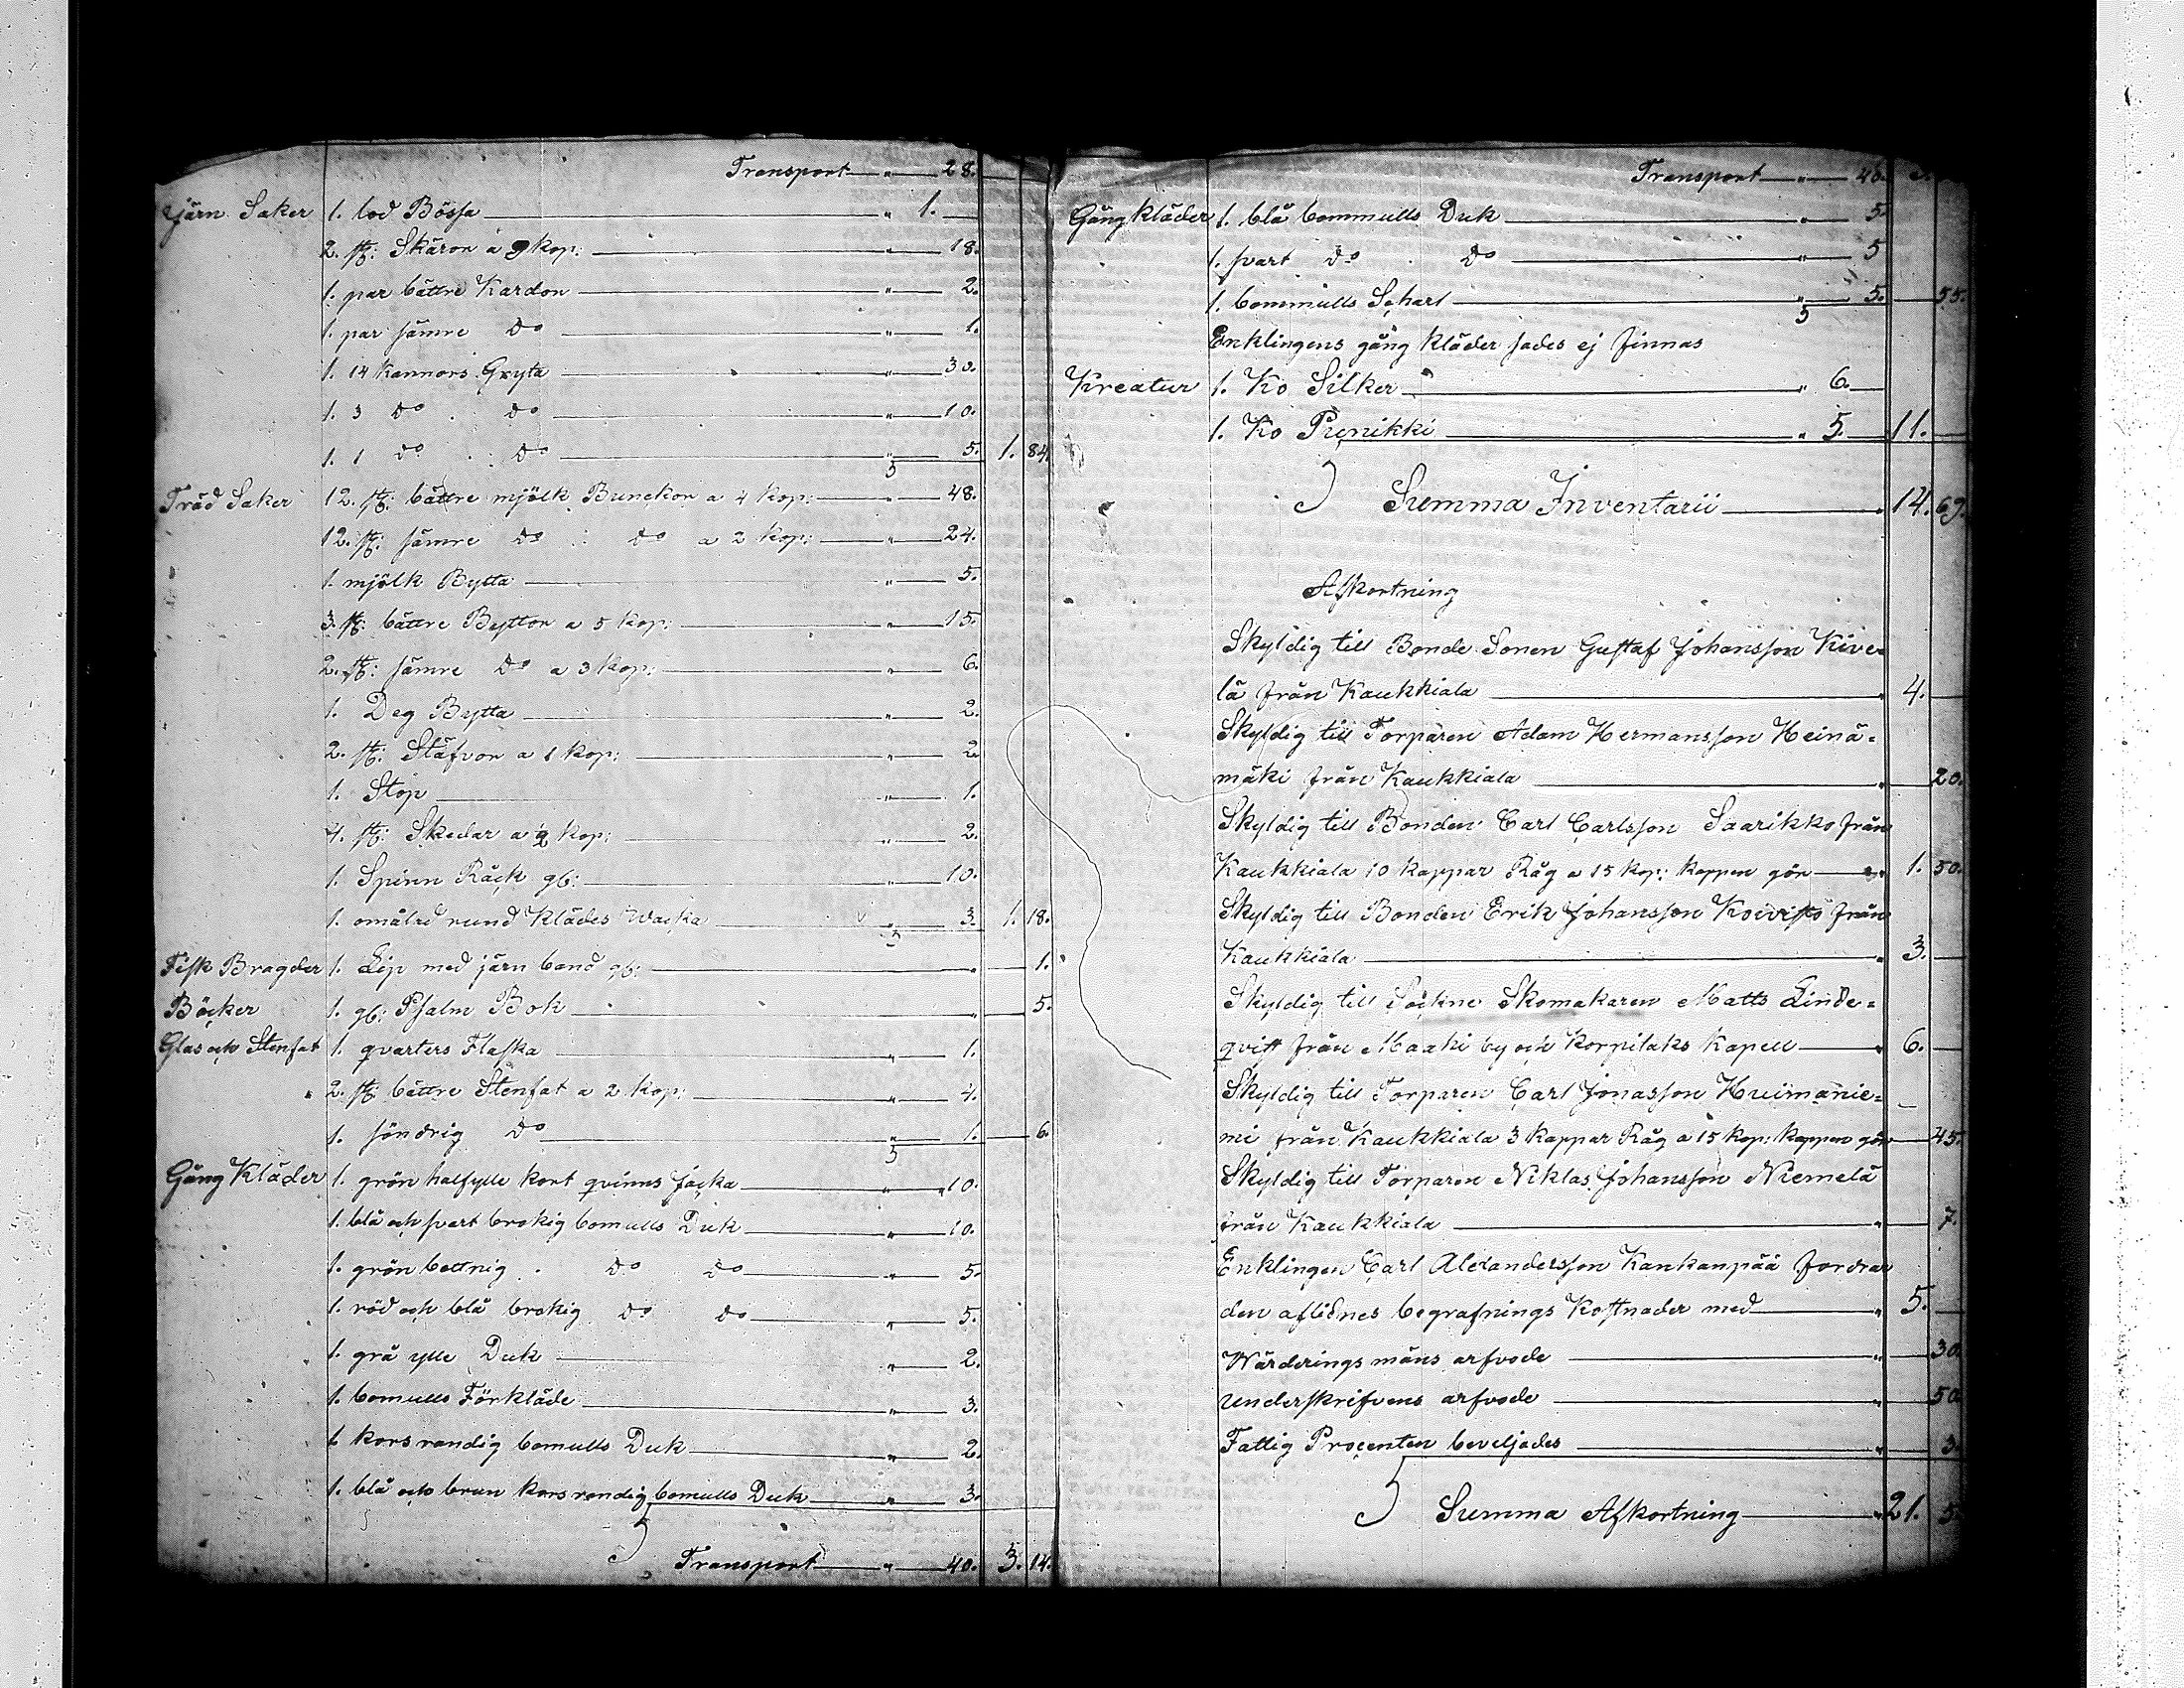 Transport — " — 28.
Järn Saker 1. lod Bössa — " 1. —
2. st: Skäron a 9 kop: — " — 18.
1. par bättre Kardon — " — 2.
1. par sämre do — " — 1.
1. 14 Kannors Gryta — " — 30.
1. 3 do do — " — 10.
1. 1 do do — " — 5. 1. 84.
Träd Saker 12. st: bättre mjölk Bunckor a 4 kop: — " — 48.
12. st: sämre do do a 2 kop: — " — 24.
1. mjölk Bytta — " — 5.
3. st: bättre Byttor a 5 kop: — " — 15.
2. st: sämre do a 3 kop: — " — 6.
1. Deg Bytta — " — 2.
2. st: Stäfvor a 1 kop: — " — 2
1. Stop — " — 1.
4. st: Skedar a ½ kop: — " — 2.
1. Spinn Räck gb: — " — 10.
1. omålad rund Klädes Wacka — " — 3. 1. 18.
Fisk Bragder 1. med järn band gb: — " — 1.
Böcker 1. gb: Psalm Bok — " — 5.
Glas och Stenfat 1. qvarters Flaska — " — 1.
2. st: bättre Stenfat a 2 kop: — " — 4.
1. söndrig do — " — 1. — 6.
Gång Kläder 1. grön halfylle kort qvinns Jacka — " — 10.
1. blå och svart brokig bomulls Duk — " — 10.
1. grön bottnig do do — " — 5.
1. röd och blå brokig do do — " — 5.
1. grå ylle Duk — " — 2.
1. bomulls Förkläde — " — 3.
1. korsrandig bomulls Duk — " — 2.
1. blå och brun korsrandig bomulls Duk — " — 3.
Transport — " — 40. 3. 14.
Transport — " — 40. 3.
Gång kläder 1. blå bommulls Duk — " — 5.
1. svart do do — " — 5
1. bommulls Scharl — " — 5. — 55.
Enklingens gång kläder sades ej finnas
Kreatur 1. Ko Silker — " 6. —
1. Ko Punikki — " 5. — 11. —
Summa Inventarii — " 14. 69.
Afkortning
Skyldig till Bonde Sonen Gustaf Johansson Kive=
lä från Kaukkiala — " 4. —
Skyldig till Torparen Adam Hermansson Heinä=
mäki från Kaukkiala — " — 20.
Skyldig till Bonden Carl Carlsson Saarikko från
Kaukkiala 10 kappar Råg a 15 kop: kappen gör — " 1. 50.
Skyldig till Bonden Erik Johansson Koivisto från
Kaukkiala — " 3. —
Skyldig till Sockne Skomakaren Matts Linde=
qvist från Maaki by och Korpilaks Kapell — " 6. —
Skyldig till Torparen Carl Jonasson Huimanie=
mi från Kaukkiala 3 kappar Råg a 15 kop: kappen gör — 45.
Skyldig till Torparen Niklas Johansson Niemelä
från Kaukkiala — " — 7.
Enklingen Carl Alexandersson Kankanpää fordrar
den aflidnes begrafnings Kostnader med — " 5. —
Wärderings mäns arfvode — " — 30.
underskrifvens arfvode — " — 50
Fattig Procenten beveljades — " — 3.
Summa Afkortning — " 21. 5.